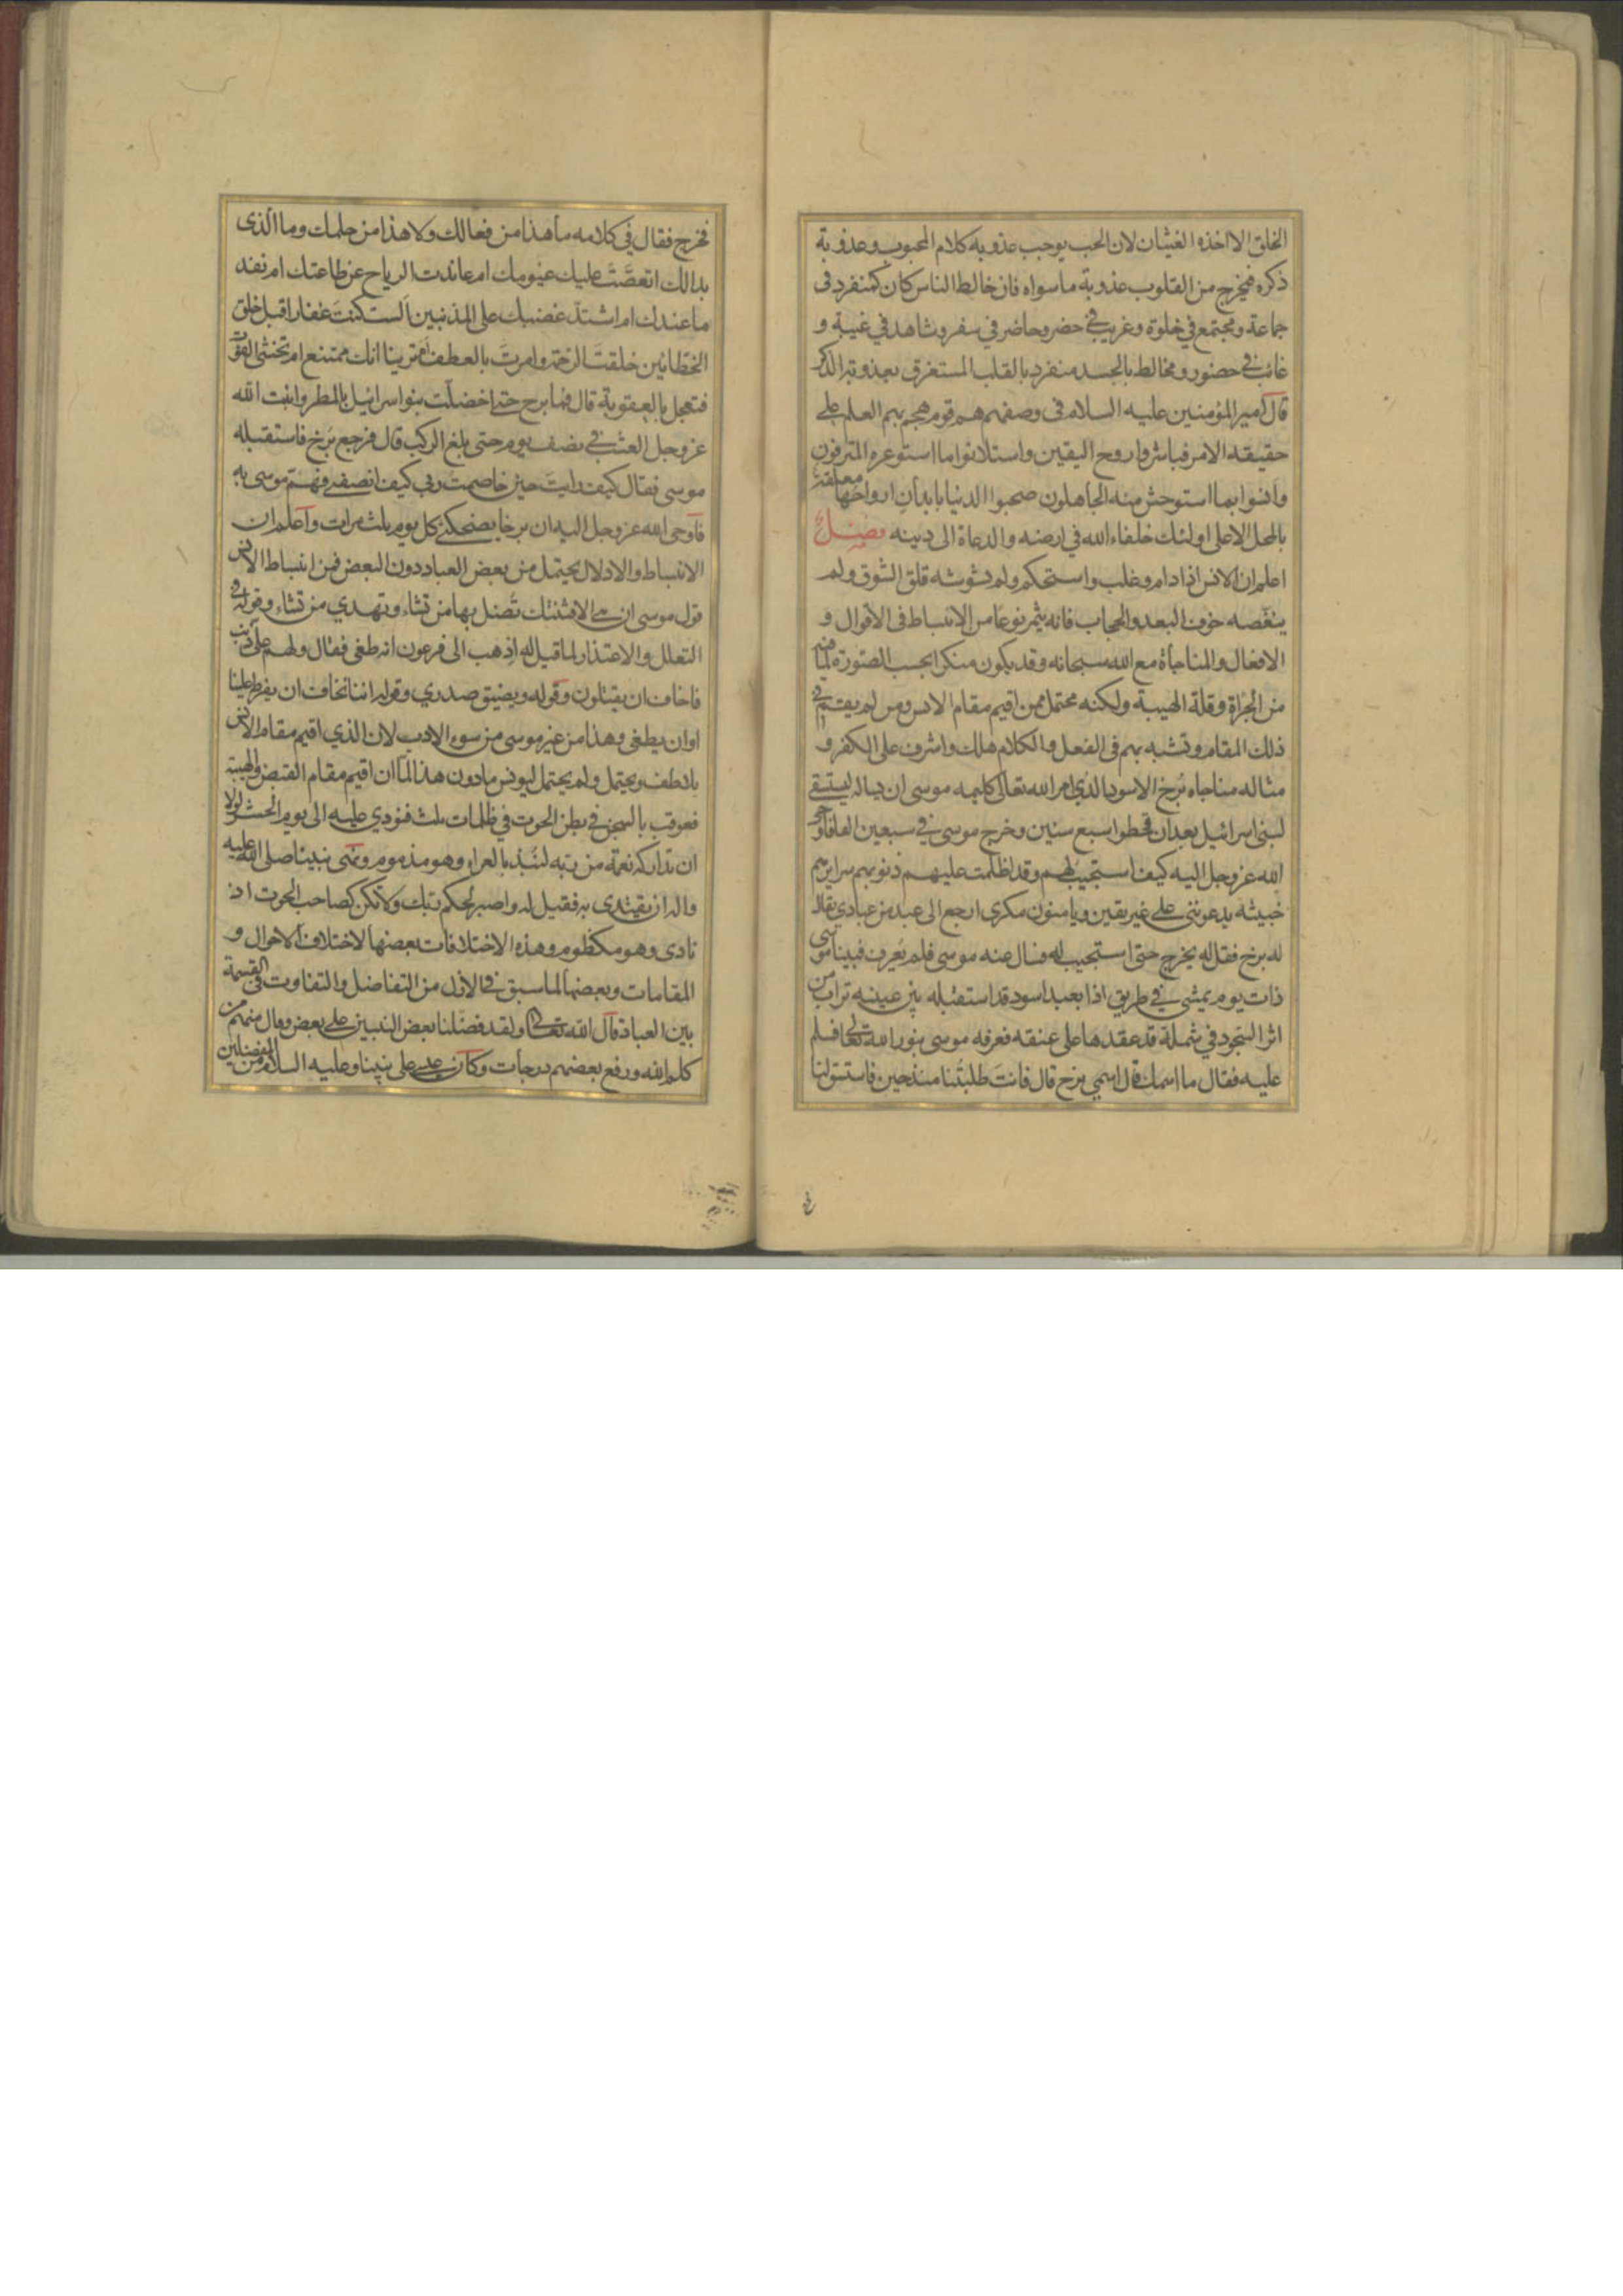 الخلق الا اخذه الغشيان لان الحب يوجب عذوبة كلام المحبوب وعذوبة
ذكره فيخرج من القلوب عذوبة ما سواه فان خالط الناس كان كمنفرد فى
جماعة ومجتمع في خلوة وغريب في حضر وحاضر في سفر وشاهد في غيبة و
غائب في حضور ومخالط بالجسد منفرد بالقلب المستغرق بعذوبة الذكر
قال امير المؤمنين عليه السلام فى وصفهم هم قوم هجم بهم العلم على
حقيقة الامر فباشروا روح اليقين واستلانوا ما استوعره المترفون
وانسوا بما استوحش منه الجاهلون صحبوا الدنيا بابدان ارواحها معلقة
بالمحل الاعلى اولئك خلفاء الله في ارضه والدعاة الى دينه فصل
اعلم ان الانس اذا دام وغلب واستحكم ولم يشوشه قلق الشوق ولم
ينغصه خوف البعد والحجاب فانه يثمر نوعا من الانبساط فى الاقوال و
الافعال والمناجاة مع الله سبحانه وقد يكون منكرا بحسب الصورة لما فيه
من الجرأة وقلة الهيبة ولكنه محتمل ممن اقيم مقام الانس ومن لم يقم في
ذلك المقام وتشبه بهم فى الفعل والكلام هلك واشرف على الكفر و
مثاله مناجاه برخ الاسود الذي امر الله تعالى كليمه موسى ان يساله ليستسقى
لبنى اسرائيل بعد ان قحطوا سبع سنين وخرج موسى في سبعين الفا فاوحى
الله عز وجل اليه كيف استجيب لهم وقد اظلمت عليهم ذنوبهم سرايرهم
خبيثه يدعوننى على غير يقين ويامنون مكرى ارجع الى عبد من عبادي يقال
له برخ فقل له يخرج حتى استجيب له فسال عنه موسى فلم يعرف فبينا موسى
ذات يوم يمشى في طريق اذا بعبد اسود قد استقبله بين عينيه تراب من
اثر السجود في شملة قد عقدها على عنقه فعرفه موسى بنور الله تعالى فسلم
عليه فقال ما اسمك قال اسمي برخ قال فانت طلبتنا منذ حين فاستسق لنا
فخرج فقال في كلامه ما هذا من فعالك ولا هذا من حلمك وما الذى
بدا لك اتعصت عليك غيومك ام عاندت الرياح عن طاعتك ام نفد
ما عندك ام اشتد غضبك على المذنبين الست كنت غفارا قبل خلق
الخطائين خلقت الرحمة وامرت بالعطف ام ترينا انك ممتنع ام تخشى الفوت
فتعجل بالعقوبة قال فما برح حتى اخضلت بنو اسرائيل بالمطر وانبت الله
عز وجل العشب في نصف يوم حتى بلغ الركب قال فرجع برخ فاستقبله
موسى فقال كيف رايت حين خاصمت ربي كيف انصفني فهم موسى به
فاوحى الله عز وجل اليه ان برخا يضحكني كل يوم ثلث مرات واعلم ان
الانبساط والادلال يحتمل من بعض العباد دون البعض فمن انبساط الانس
قول موسى ان هى الا فتنتك تضل بها من تشاء وتهدي من تشاء وقوله في
التعلل والاعتذار لما قيل له اذهب الى فرعون انه طغى فقال ولهم على ذنب
فاخاف ان يقتلون وقوله ويضيق صدري وقوله اننا نخاف ان يفرط علينا
او ان يطغى وهذا من غير موسى من سوء الادب لان الذي اقيم مقام الانس
يلاطف ويحتمل ولم يحتمل ليونس ما دون هذا لما ان اقيم مقام القبض والهيبة
فعوقب بالسجن في بطن الحوت في ظلمات ثلث فنودي عليه الى يوم الحشر لولا
ان تداركه نعمة من ربه لنبذ بالعراء وهو مذموم ونهى نبينا صلى الله عليه
واله ان يقتدى به فقيل له واصبر لحكم ربك ولا تكن كصاحب الحوت اذ
نادى وهو مكظوم وهذه الاختلافات بعضها لاختلاف الاحوال و
المقامات وبعضها لما سبق في الازل من التفاضل والتفاوت في القسمة
بين العباد قال الله تعالى ولقد فضلنا بعض النبيين على بعض وقال منهم من
كلم الله ورفع بعضهم درجات وكان عيسى على نبينا وعليه السلام من المفضلين